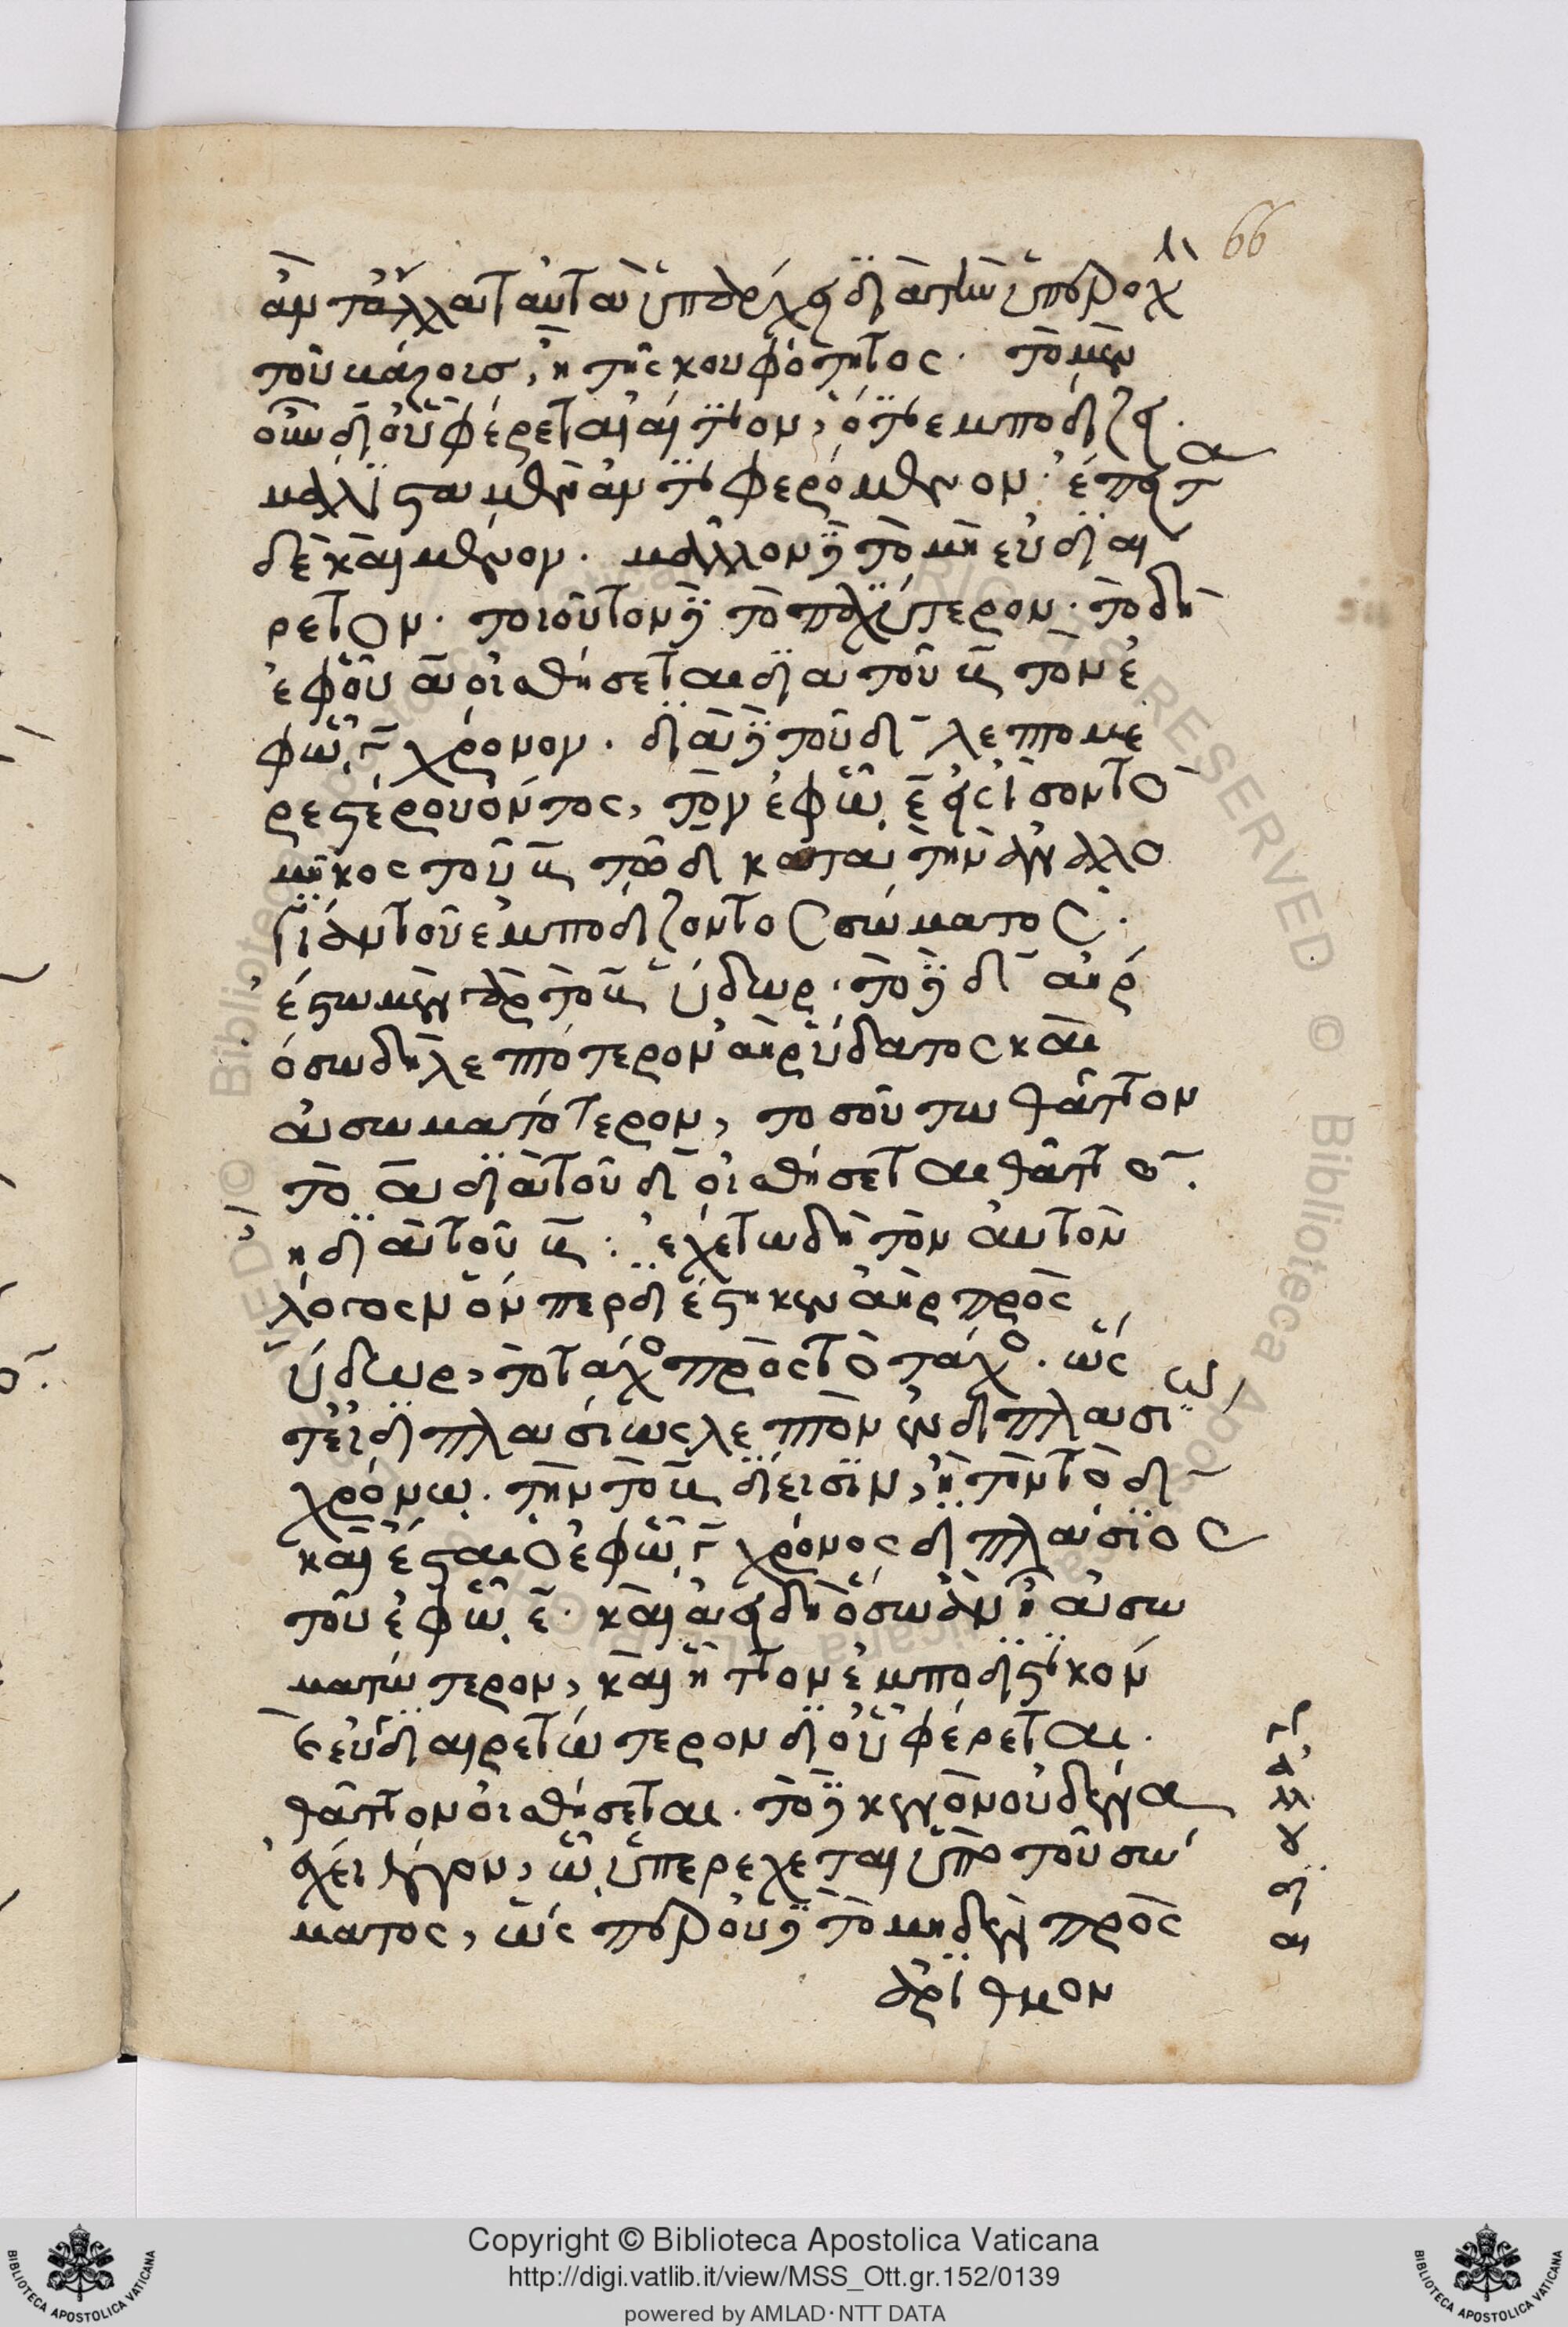 66
ἂν τἄλλα ταυτὰ ὑπάρχη διὰ τὴν ὑπεροχὴν
τοῦ βάρους, ἢ τῆς κουφότητος. τὸ μὲν
οὖν δι' οὗ φέρεται αἴτιον, ὅτι ἐμποδίζει.
μάλιστα μὲν ἀντιφερόμενον. ἔπειτα
δὲ καὶ μένον. μᾶλλον δὲ τὸ μὴ εὐδιαί
ρετον. τοιοῦτον δὲ τὸ παχύτερον. τὸ δὴ
ἐφ' οὗ α οἰσθήσεται διὰ τοῦ β τὸν ἐ
φ' ᾧ γ χρόνον. διὰ δὲ τοῦ δ λεπτομε
ρεστέρου ὄντος, τὸν ἐφ' ᾧ ε εἰ ἴσον τὸ
μῆκος τοῦ β τῷ δ κατὰ τὴν ἀναλο
γίαν τοῦ ἐμποδίζοντος σώματος.
ἔστω μὲν γὰρ τὸ β ὕδωρ. τὸ δὲ δ ἀὴρ
ὅσω δὴ λεπτότερον ἀὴρ ὕδατος καὶ
ἀσωματότερον, τοσούτω θᾶττον
τὸ α διὰ τοῦ δ οἰσθήσεται θᾶττον.
ἢ διὰ τοῦ β: ἐχέτω δὴ τὸν αὐτὸν
λόγον ὅνπερ διέστηκεν ἀὴρ πρὸς
ὕδωρ, τὸ τάχος πρὸς τὸ τάχος. ὥς
τε εἰ διπλασίως λεπτὸν ἐν διπλασίω
χρόνω. τὴν τὸ β δίεισιν, ἢ τὴν τὸ δ
καὶ ἔσται ὁ ἐφ' ᾧ γ χρόνος διπλάσιος
τοῦ ἐφ' ᾧ ε. καὶ ἀεὶ δὴ ὅσω ἂν ἢ ἀσω
ματώτερον, καὶ ἧττον ἐμποδιστικὸν
καὶ εὐδιαιρετώτερον δι' οὗ φέρεται.
θᾶττον οἰσθήσεται. τὸ δὲ κενὸν οὐδένα
ἔχει λόγον, ᾧ ὑπερέχεται ὑπὸ τοῦ σώ
ματος, ὥσπερ οὐδὲ τὸ μηδὲν πρὸς
ἀριθμὸν